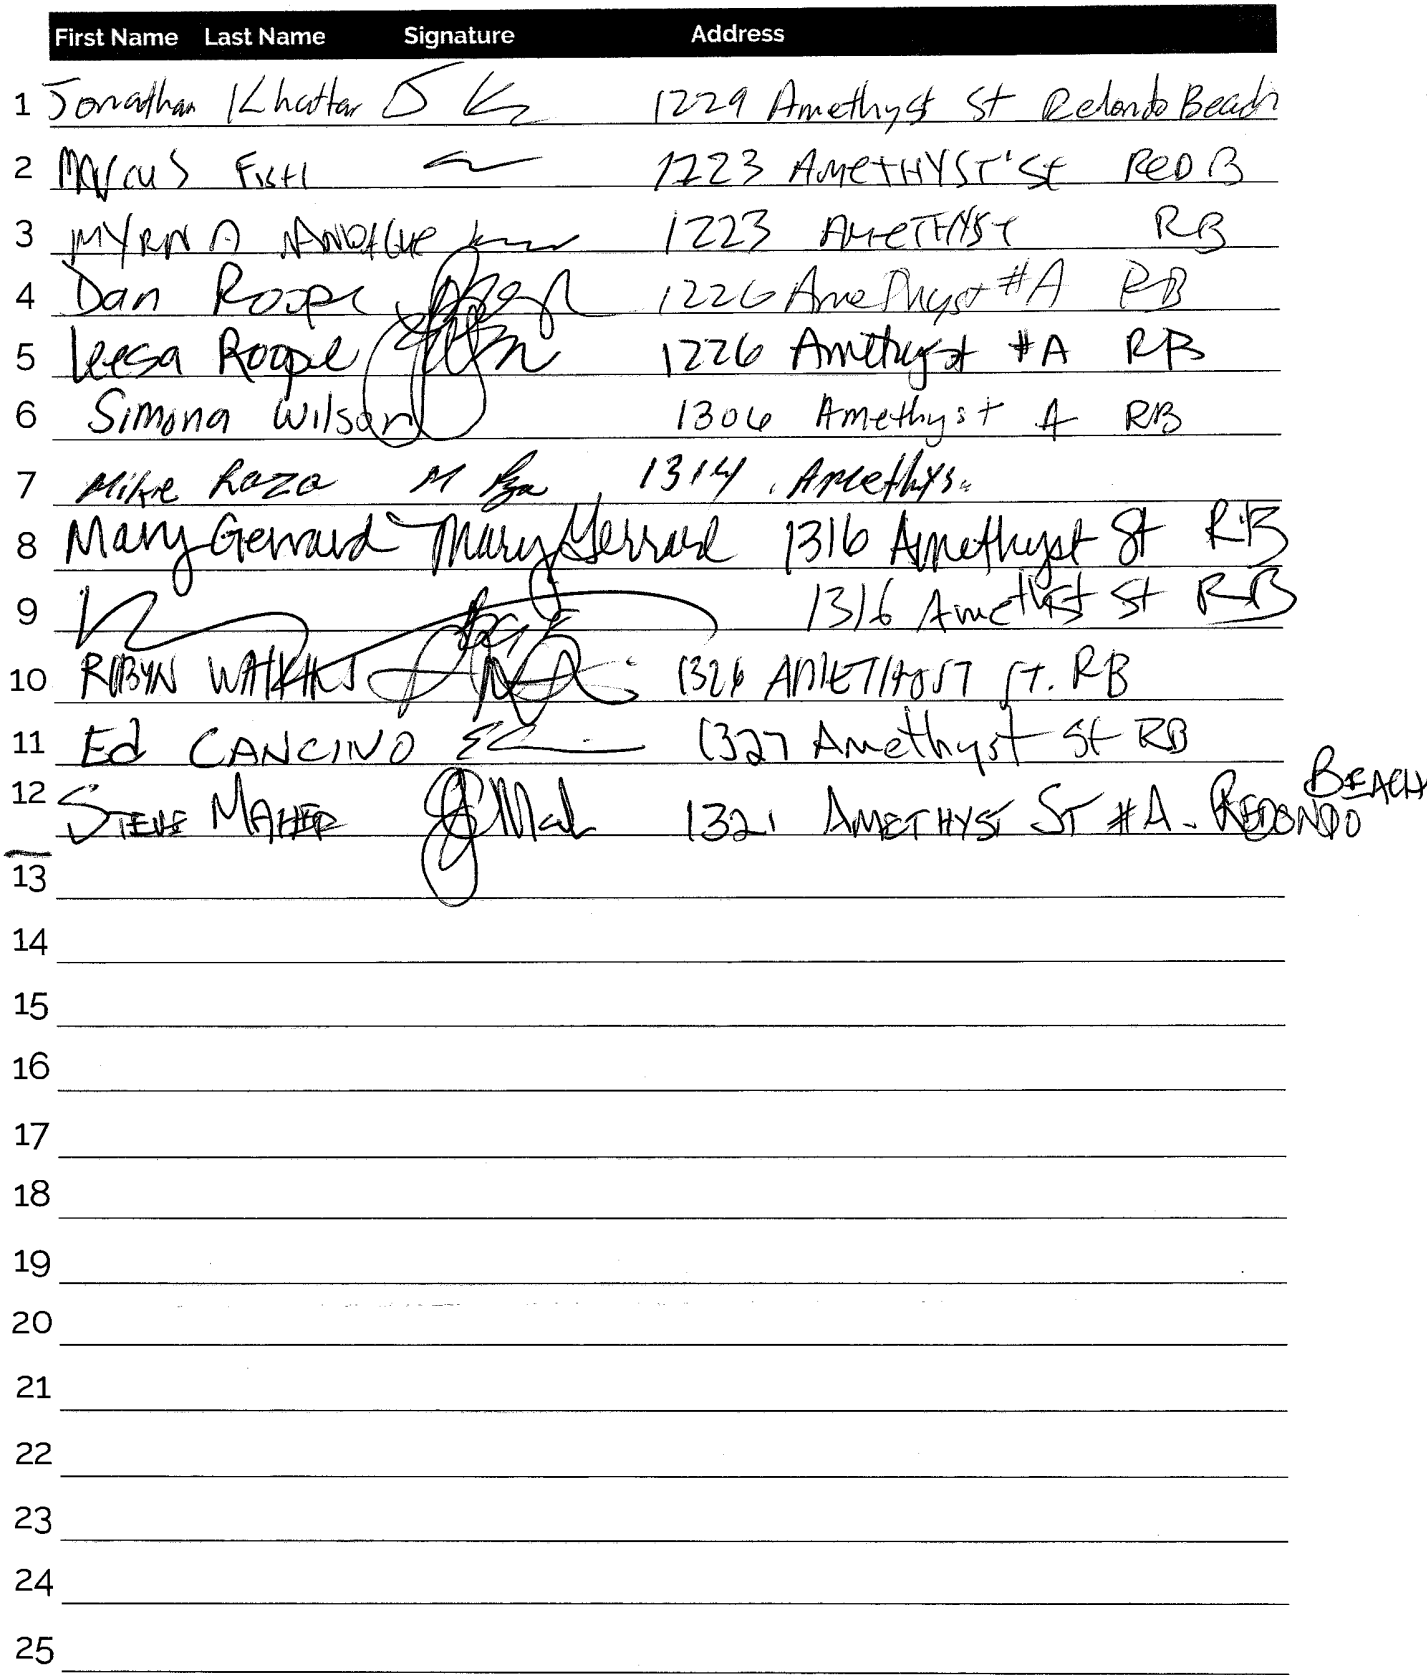 First Name Last Name Signature Address
1 Jonathan Khattar J K 1229 Amethyst St Redondo Beach
2 Marcus FISH 1223 AMETHYST St RED B
3 MYRNA 1223 AMETHYST RB
4 Dan Roope 1226 Amethyst #A RB
5 Leesa Roope 1226 Amethyst #A RB
6 Simona Wilson 1306 Amethyst A RB
7 Mike Raza M 1314 Amethys
8 Mary Gerrard Mary Gerrard 1316 Amethyst St RB
9 1316 Amethyst St RB
10 ROBYN WATKINS 1326 AMETHYST ST. RB
11 Ed CANCINO 1327 Amethyst St RB
12 STEVE MAHER 1321 AMETHYST ST #A - REDONDO BEACH
13
14
15
16
17
18
19
20
21
22
23
24
25